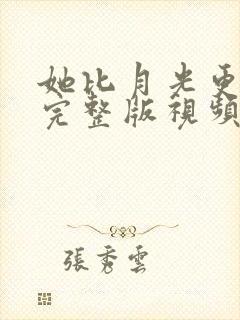 她比月光更
完整版視頻
張秀雲